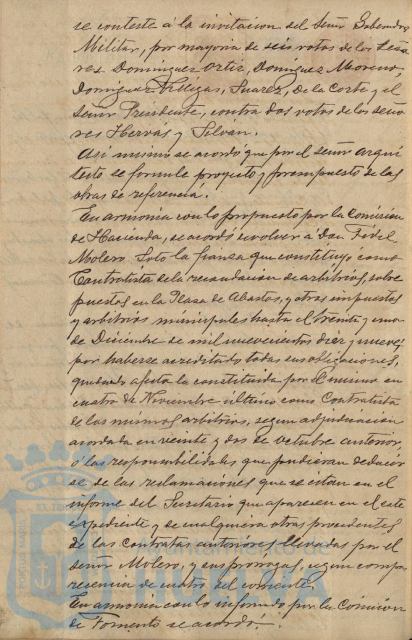 se conteste á la invitacion del Señor Gobernador
Militar, por mayoria de seis votos de los Seño
res Dominguez Ortiz, Dominguez Moreno,
Dominguez Villegas, Suarez, de la Corte y el
Señor Presidente, contra dos votos de los seño
res Hervas y Silvan.
Asi mismo se acordó que por el señor arqui
tecto se formule proyecto y presupuesto de las
obras de referencia.
En armonia con lo propuesto por la Comision
de Hacienda, se acordó devolver á Don Fidel
Molero Soto la fianza que constituyó como
Contratista de la recaudacion de arbitrios, sobre
puestos en la Plaza de Abastos, y otros impuestos
y arbitrios municipales hasta el treinta y uno
de Diciembre de mil nuevecientos diez y nueve;
por haberse acreditado todas sus obligaciones,
quedando afecta la constituida por el mismo en
cuatro de Noviembre ultimo como Contratista
de los mismos arbitrios, segun adjudicacion
acordada en veinte y dos de octubre anterior
á las responsabilidades que pudieran deducir
se de las reclamaciones que se citan en el
informe del Secretario que aparecen en el este
expediente y de cualquiera otras procedentes
de las contratas anteriores llevadas por el
señor Molero, y sus prorrogas, segun compa
rescencia de cuatro del corriente.
En armonia con lo informado por la Comision
de Fomento se acordo.